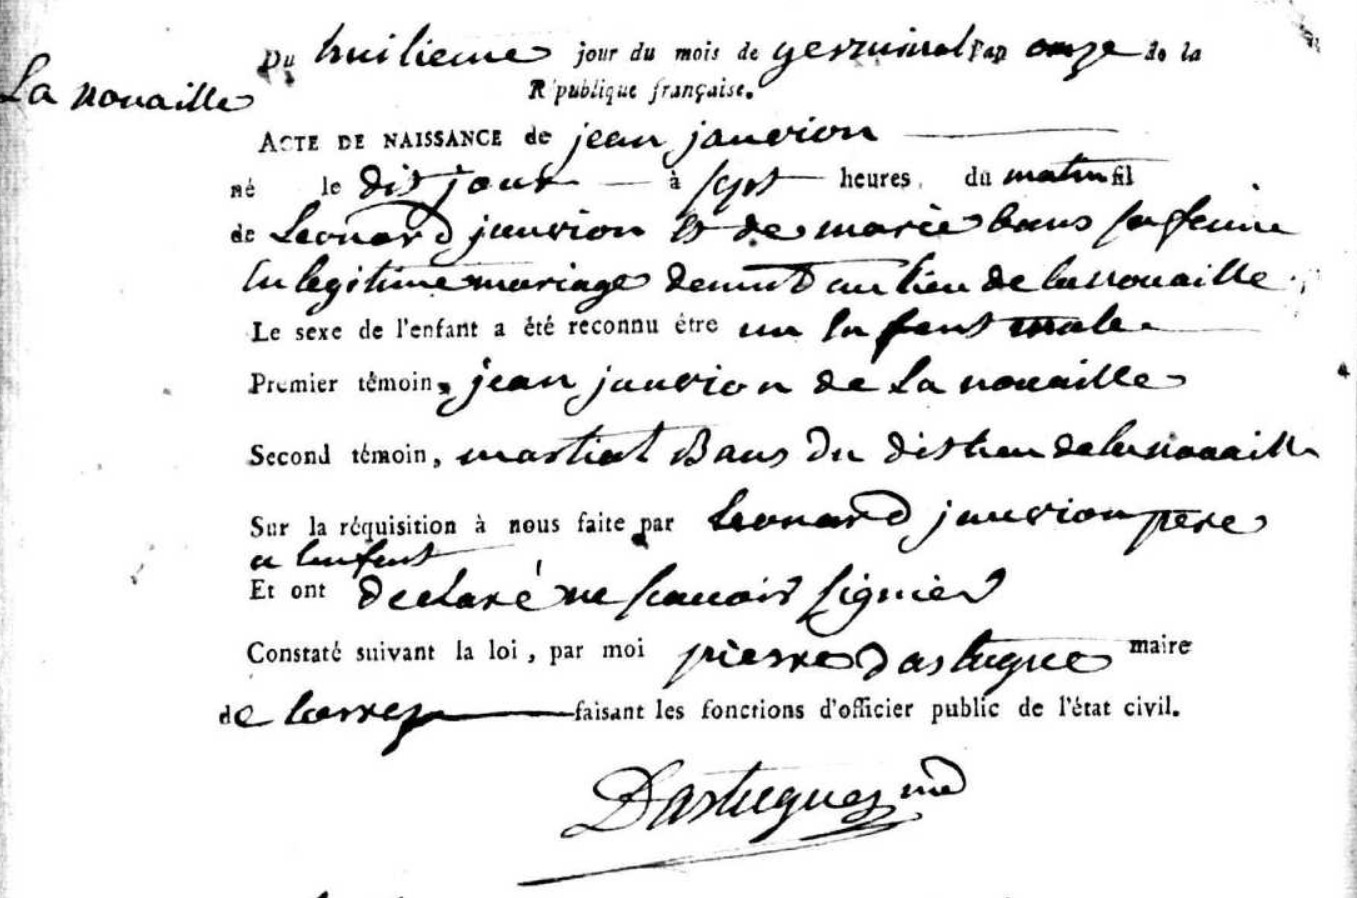 Du huitieme jour du mois de germinal l'an onze de la
La nouaille
République française.
ACTE DE NAISSANCE de jean janvion
né le dit jour à sept heures du matin fil
de Leonard janvion et de marie bans sa femme
En legitime mariage demt au lieu de la nouaille
Le sexe de l'enfant a été reconnu être un Enfant male
Premier témoin, jean janvion de La nouaille
Second témoin, martial Bans Du dit lieu de la nouaille
Sur la réquisition à nous faite par Leonard janvion pere
a lenfant
Et ont declaré ne scavoir signier
Constaté suivant la loi, par moi pierre Dastugue maire
de
faisant les fonctions d'officier public de l'état civil.
Dastugues